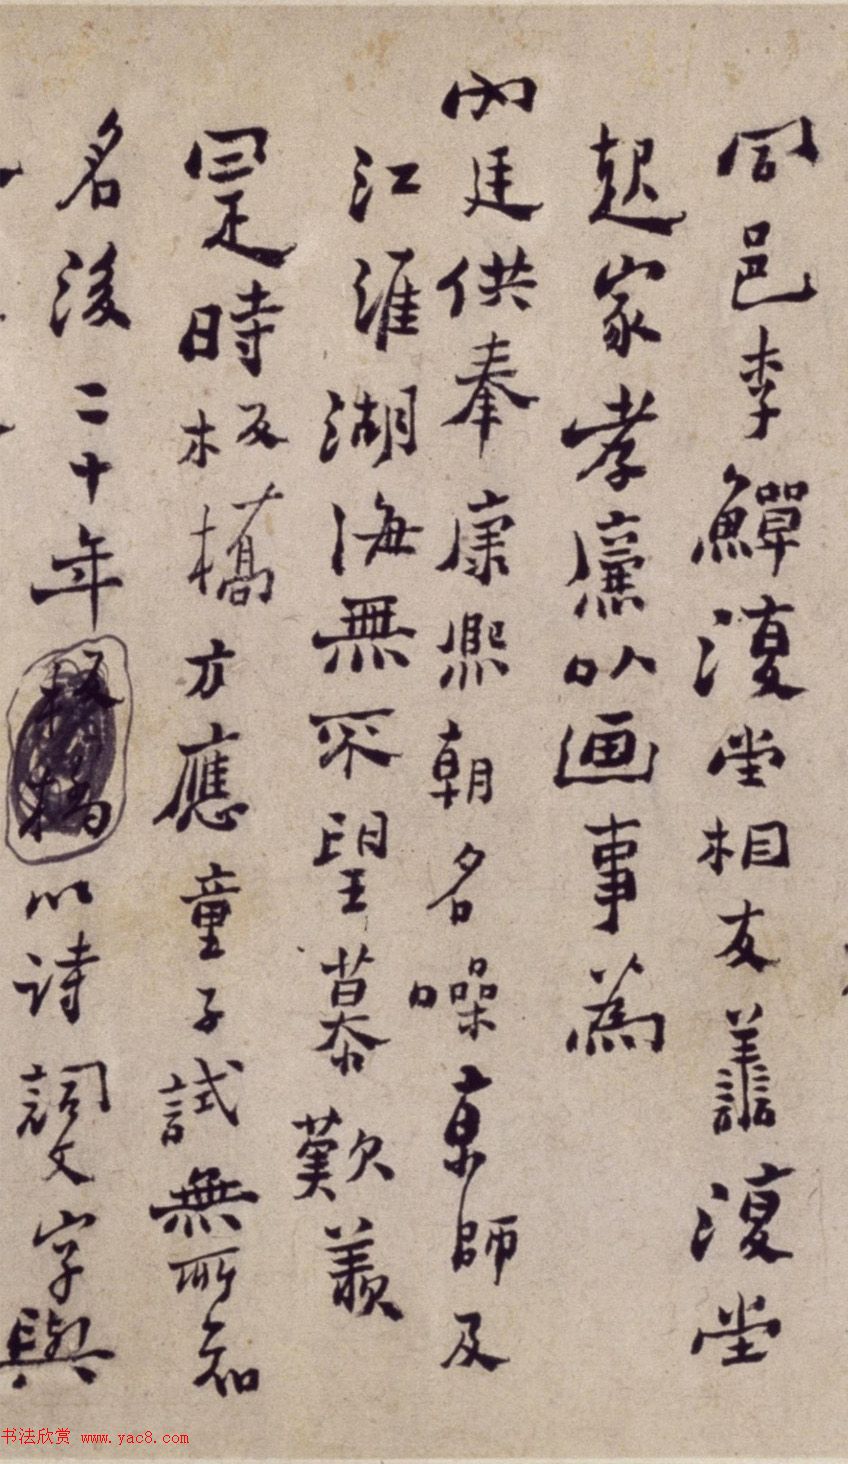 同邑李鱓復堂相友譱復堂
起家孝廉以画事為
內廷供奉康熙朝名噪京師及
江淮湖海無不望慕歎羡
是時板橋方應童子試無所知
名後二十年板橋以詩詞文字與
书法欣赏 www.yac8.com